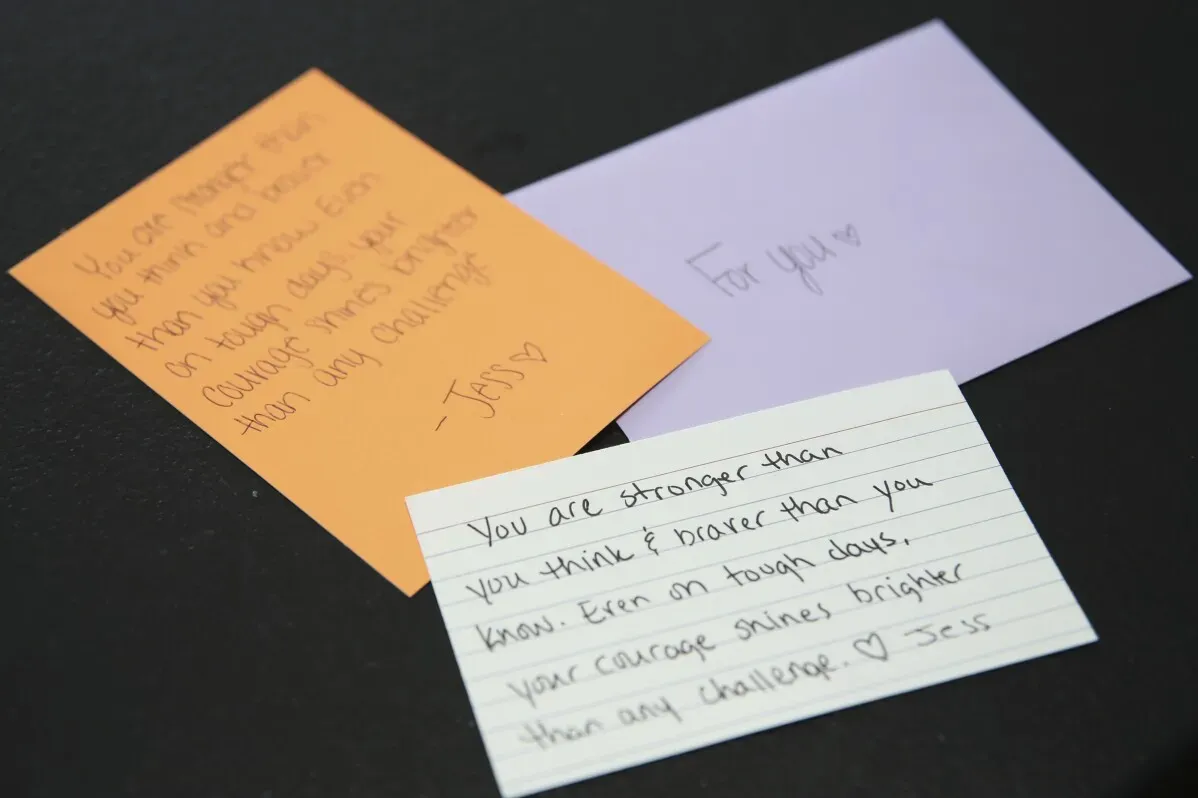 You are stronger than
you think and braver
than you know Even
on tough days, your
courage shines brighter
than any challenge
- Jess ♡
For you ♡
You are stronger than
you think & braver than you
know. Even on tough days,
your courage shines brighter
than any challenge. ♡ Jess